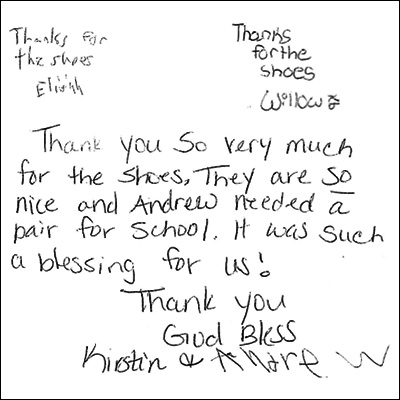 Thanks for
the shoes
Elijah
Thanks
for the
shoes
Willow
Thank you so very much
for the shoes, They are so
nice and Andrew needed a
pair for school. It was such
a blessing for us!
Thank you
God Bless
Kirstin & Andrew